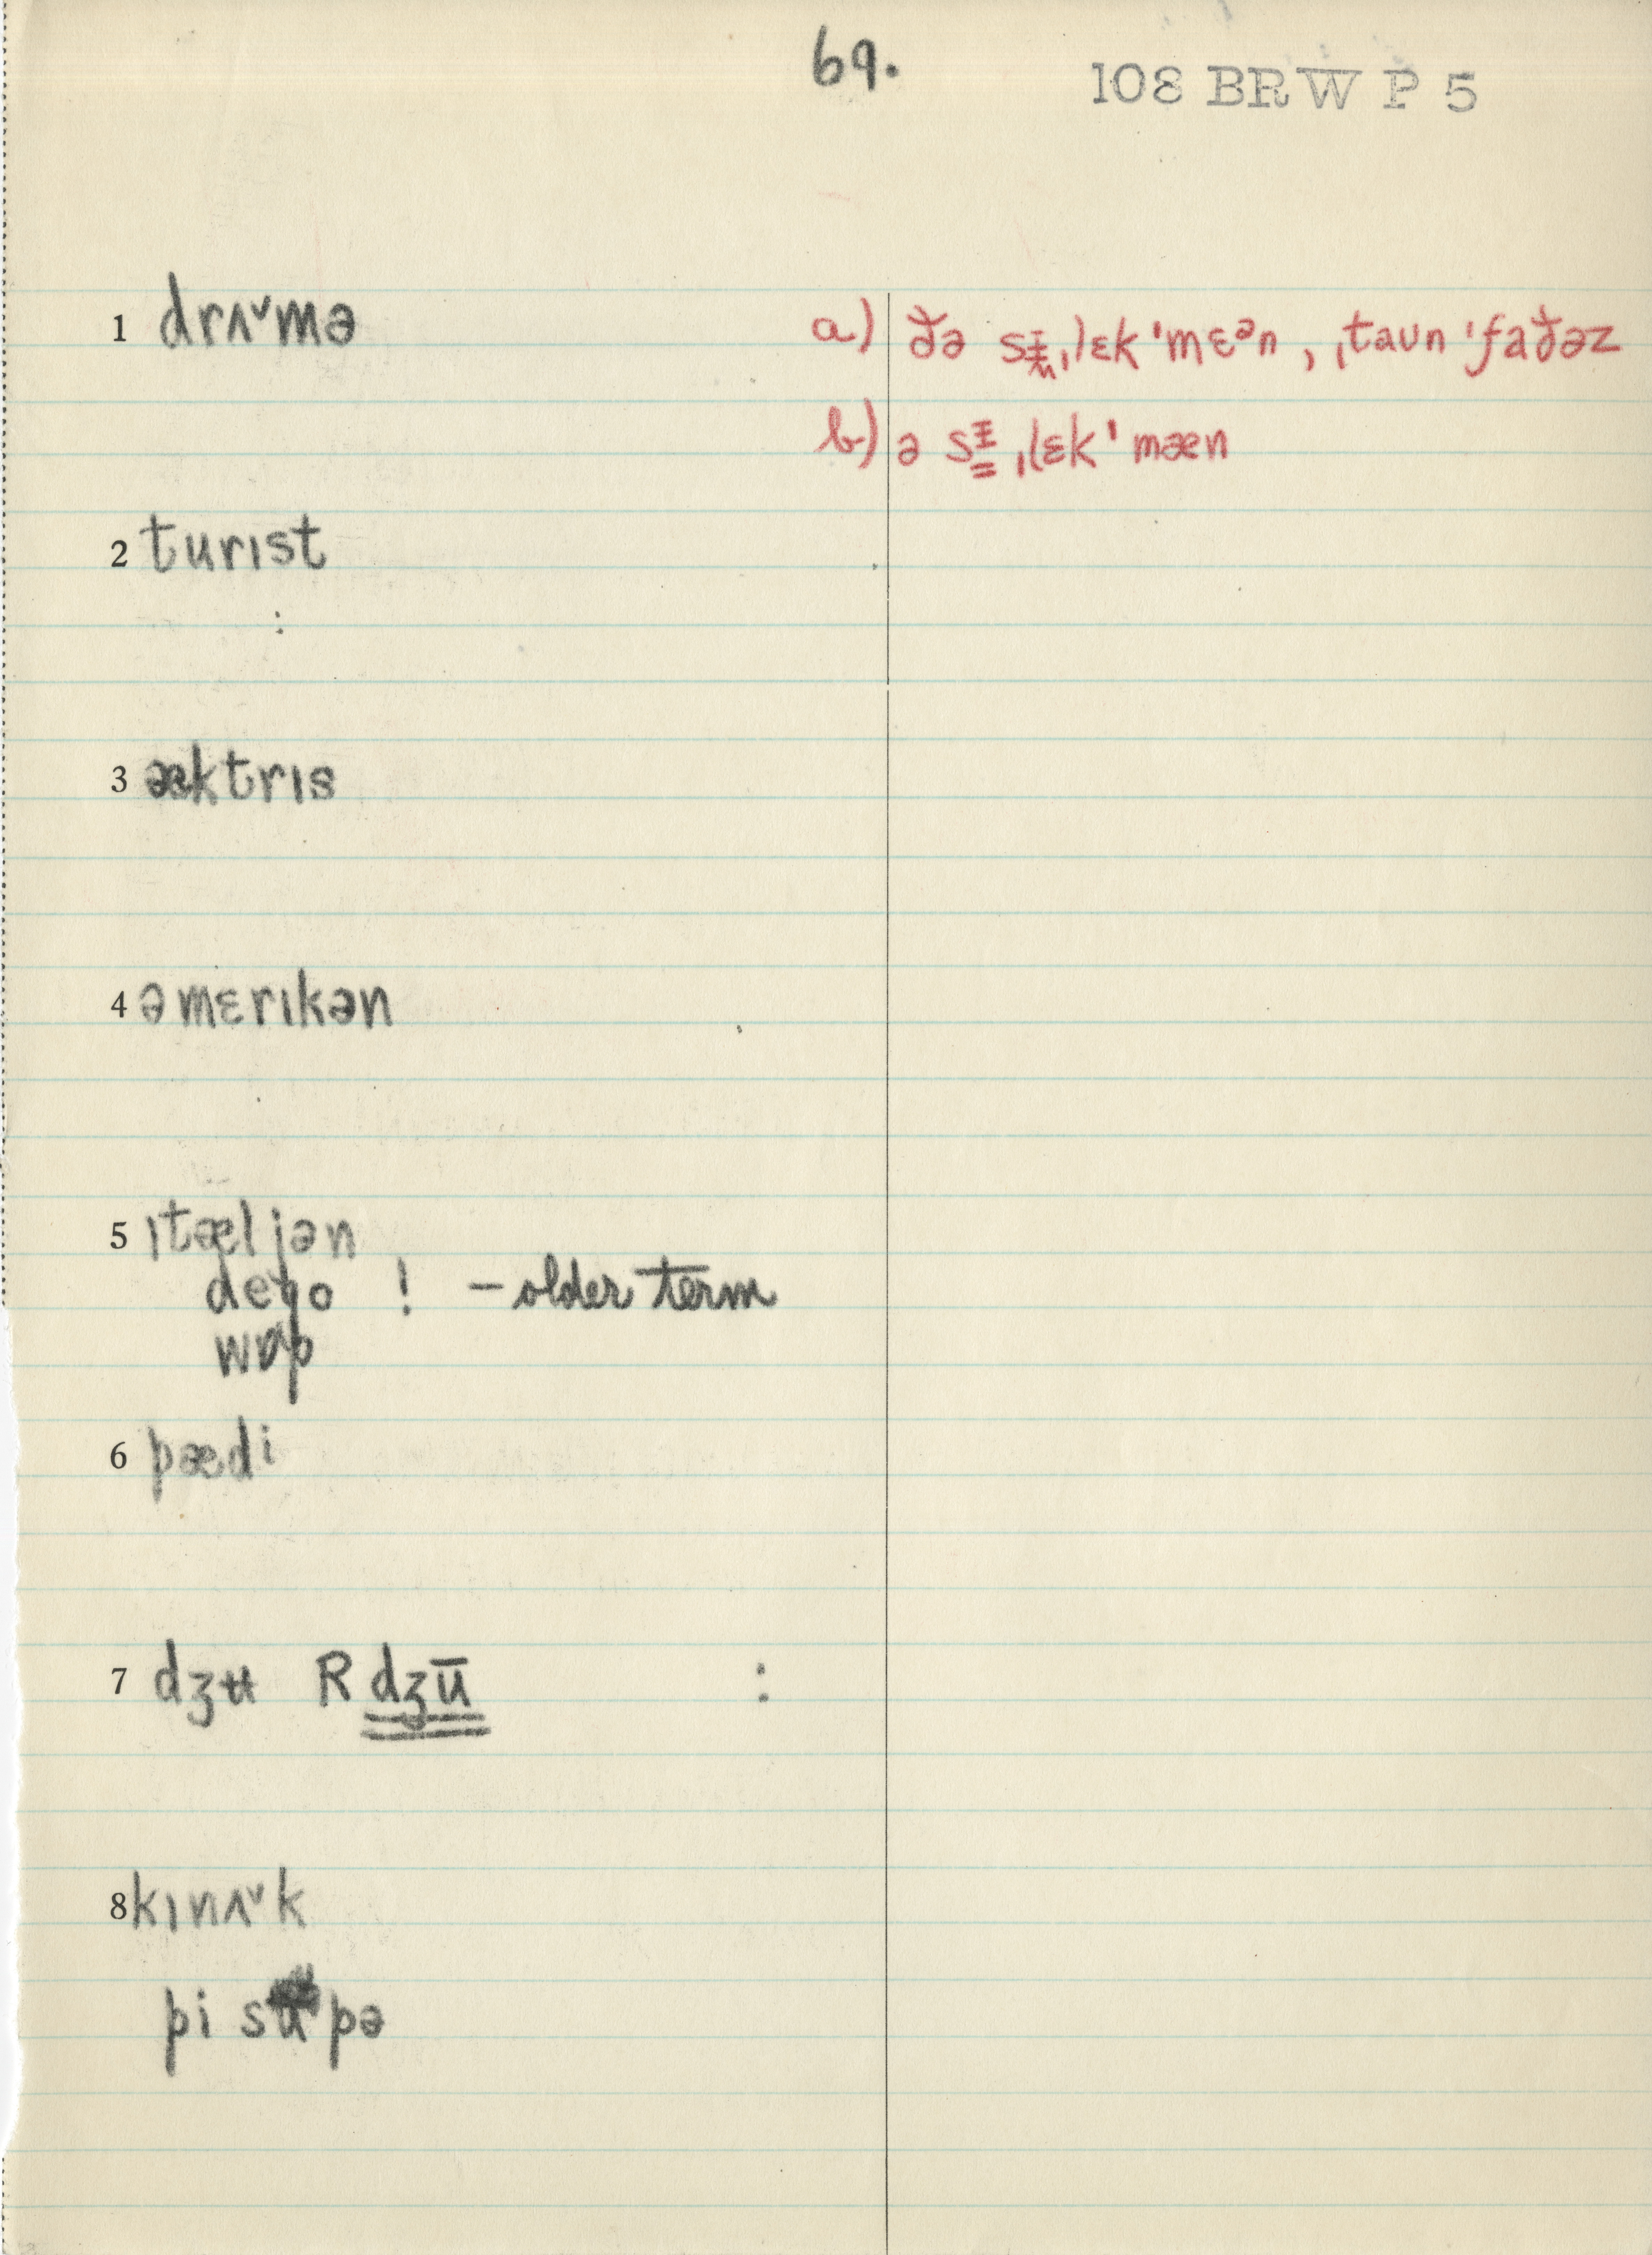 69.
108 BRW P 5
1 drʌ˅mə
a) ðə sɪ̵ˌlɛk'mɛᵊn , ˌtaʊn 'faðəz
b) ə sɪ̵ ˌlɛk' mæn
2 turɪst
:
3 æktrɪs
4 əmɛrɪkən
5 ɪtæljən
dego ! – older term
wɒp
6 pædi
7 dʒʉ R dʒū :
8 kɪnʌ˅k
pi supə